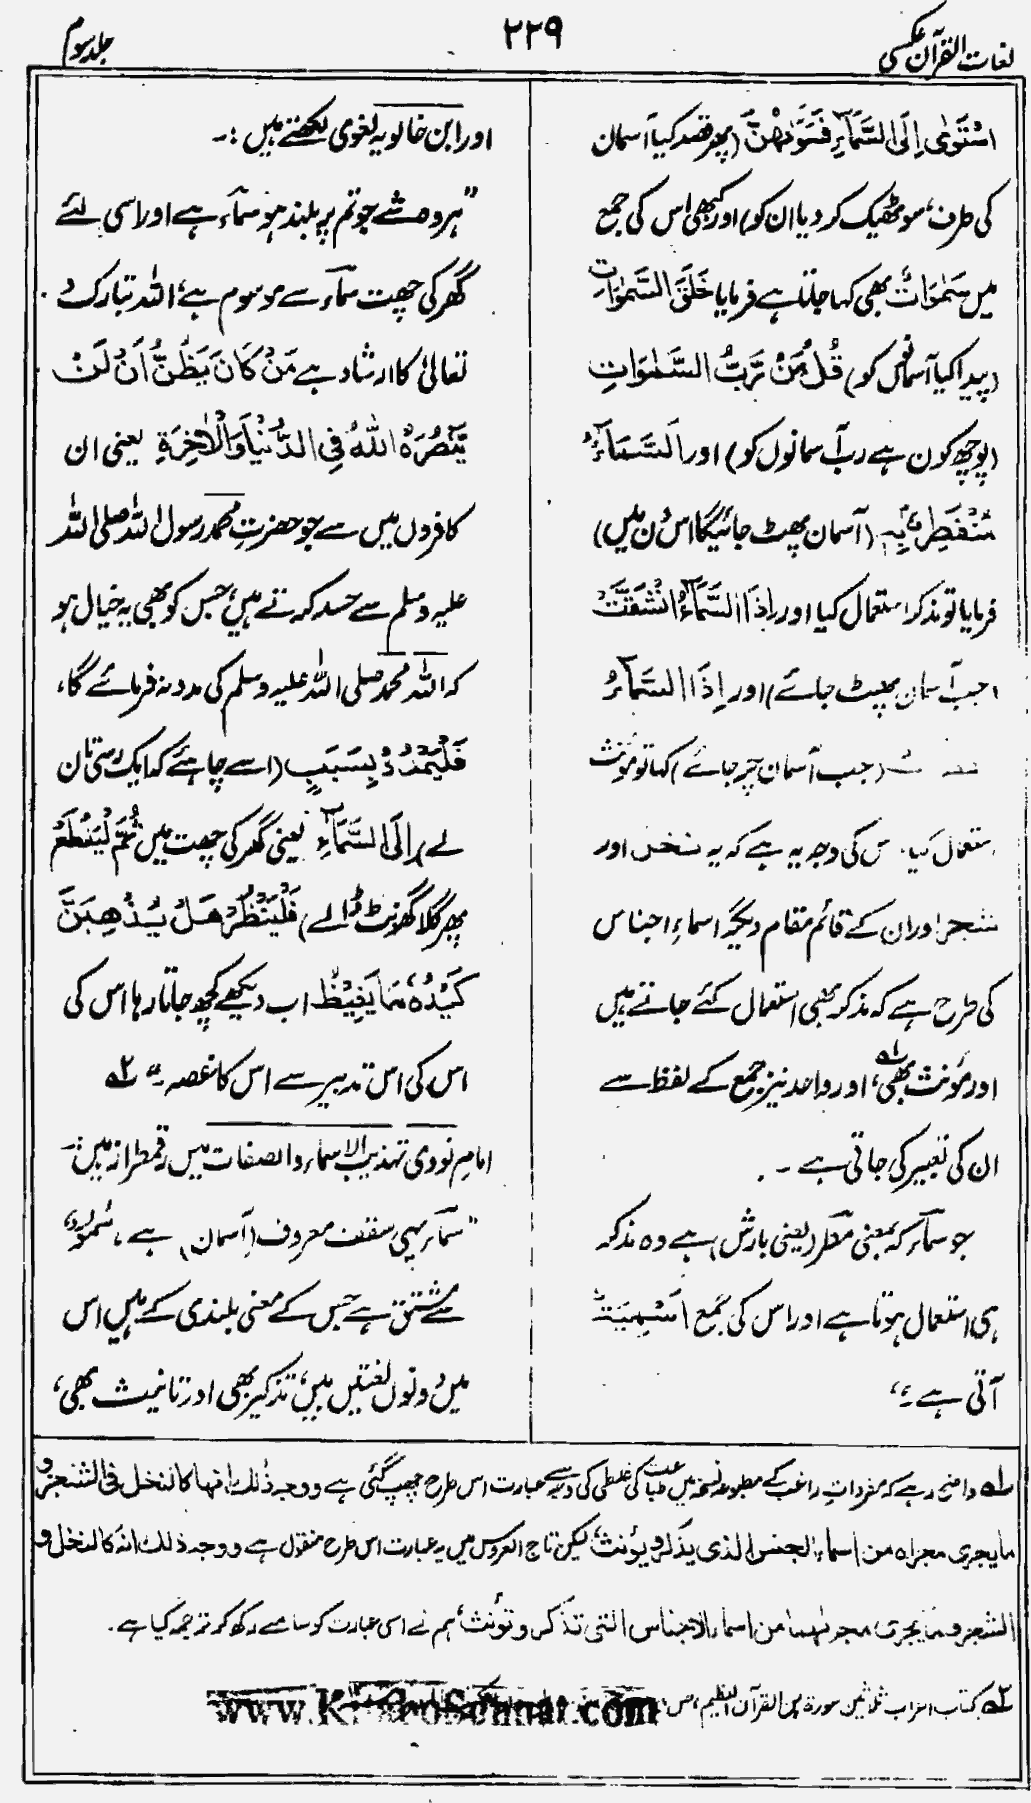 لغات القرآن عکسی
۲۲۹
جلد سوم
اسْتَوٰی اِلَی السَّمَآءِ فَسَوّٰىهُنَّ (پھر قصد کیا آسمان
کی طرف، سو ٹھیک کر دیا ان کو) اور کبھی اس کی جمع
میں سَمٰوَات بھی کہا جاتا ہے فرمایا خَلَقَ السَّمٰوَاتِ
(پیدا کیا آسمانوں کو) قُلْ مَنْ رَّبُّ السَّمٰوَاتِ
(پوچھ کون ہے رب آسمانوں کو) اور اَلسَّمَآءُ
مُنْفَطِرٌۢ بِهٖ (آسمان پھٹ جائیگا اس دن میں)
فرمایا تو مذکر استعمال کیا اور اِذَا السَّمَآءُ انْشَقَّتْ
(جب آسمان پھٹ جائے) اور اِذَا السَّمَآءُ
(جب آسمان چر جائے) کہا تو مؤنث
استعمال کیا۔ اس کی وجہ یہ ہے کہ یہ نخل اور
شجر اور ان کے قائم مقام دیگر اسماءِ اجناس
کی طرح ہے کہ مذکر بھی استعمال کئے جاتے ہیں
اور مؤنث بھی،<sup>۱</sup> اور واحد نیز جمع کے لفظ سے
ان کی تعبیر کی جاتی ہے ۔
جو سمآء کہ بمعنی مطر (یعنی بارش) ہے وہ مذکر
ہی استعمال ہوتا ہے اور اس کی جمع اَسْمِیَۃٌ
آتی ہے۔“
اور ابن خالویہ لغوی لکھتے ہیں :۔
”ہر وہ شے جو تم پر بلند ہو سمآء ہے اور اسی لئے
گھر کی چھت سمآء سے موسوم ہے، اللہ تبارک و
تعالیٰ کا ارشاد ہے مَنْ کَانَ یَظُنُّ اَنْ لَّنْ
یَّنْصُرَهُ اللّٰهُ فِی الدُّنْیَا وَالْاٰخِرَةِ یعنی ان
کافروں میں سے جو حضرتِ محمد رسول اللہ صلی اللہ
علیہ وسلم سے حسد کرتے ہیں، جس کو بھی یہ خیال ہو
کہ اللہ محمد صلی اللہ علیہ وسلم کی مدد نہ فرمائے گا،
فَلْیَمْدُدْ بِسَبَبٍ (اسے چاہئے کہ ایک رسی تان
لے) اِلَی السَّمَآءِ یعنی گھر کی چھت میں ثُمَّ لْیَقْطَعْ
پھر گلا گھونٹ ڈالے) فَلْیَنْظُرْ هَلْ یُذْهِبَنَّ
کَیْدُهٗ مَا یَغِیْظُ اب دیکھے کچھ جاتا رہا اس کی
اس کی اس تدبیر سے اس کا غصہ ۔“ <sup>۲</sup>
امام نووی تہذیب الاسماء والصفات میں رقمطراز ہیں:۔
”سمآء یہی سقف معروف (آسمان) ہے، سُمُوٌّ
سے مشتق ہے جس کے معنی بلندی کے ہیں اس
میں دونوں لغتیں ہیں، تذکیر بھی اور تانیث بھی،
<sup>۱</sup> واضح رہے کہ مفردات راغب کے مطبوعہ نسخہ میں طباعت کی غلطی کی وجہ سے عبارت اس طرح چھپ گئی ہے ووجہ ذٰلک انہا کالنخل فی الشجر و
ما یجری مجراہ من اسماء الجنس الذی یذکر ویؤنث، لیکن تاج العروس میں یہ عبارت اس طرح منقول ہے ووجہ ذٰلک انہ کالنخل و
الشجر وما یجری مجراہما من اسماء الاجناس التی تذکر وتؤنث، ہم نے اسی عبارت کو سامنے رکھ کر ترجمہ کیا ہے۔
<sup>۲</sup> کتاب اعراب ثلاثین سورۃ من القرآن العظیم، ص
www.KitaboSunnat.com